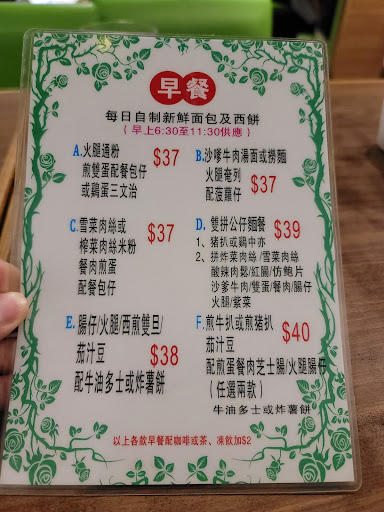 早餐
每日自制新鮮面包及西餅
(早上6:30至11:30供應)
A.火腿通粉 $37
煎雙蛋配餐包仔
或鷄蛋三文治
B.沙嗲牛肉湯面或撈麵
火腿奄列 $37
配菠蘿仔
C.雪菜肉絲或 $37
榨菜肉絲米粉
餐肉煎蛋
配餐包仔
D.雙拼公仔麵餐 $39
1、豬扒或鷄中亦
2、拼炸菜肉絲/雪菜肉絲
酸辣肉鬆/紅腸/仿鮑片
沙爹牛肉/雙蛋/餐肉/腸仔
火腿/紫菜
E.腸仔/火腿/西煎雙旦/
茄汁豆 $38
配牛油多士或炸薯餅
F.煎牛扒或煎豬扒 $40
茄汁豆
配煎蛋餐肉芝士腸/火腿腸仔
(任選兩款)
牛油多士或炸薯餅
以上各款早餐配咖啡或茶、凍飲加$2